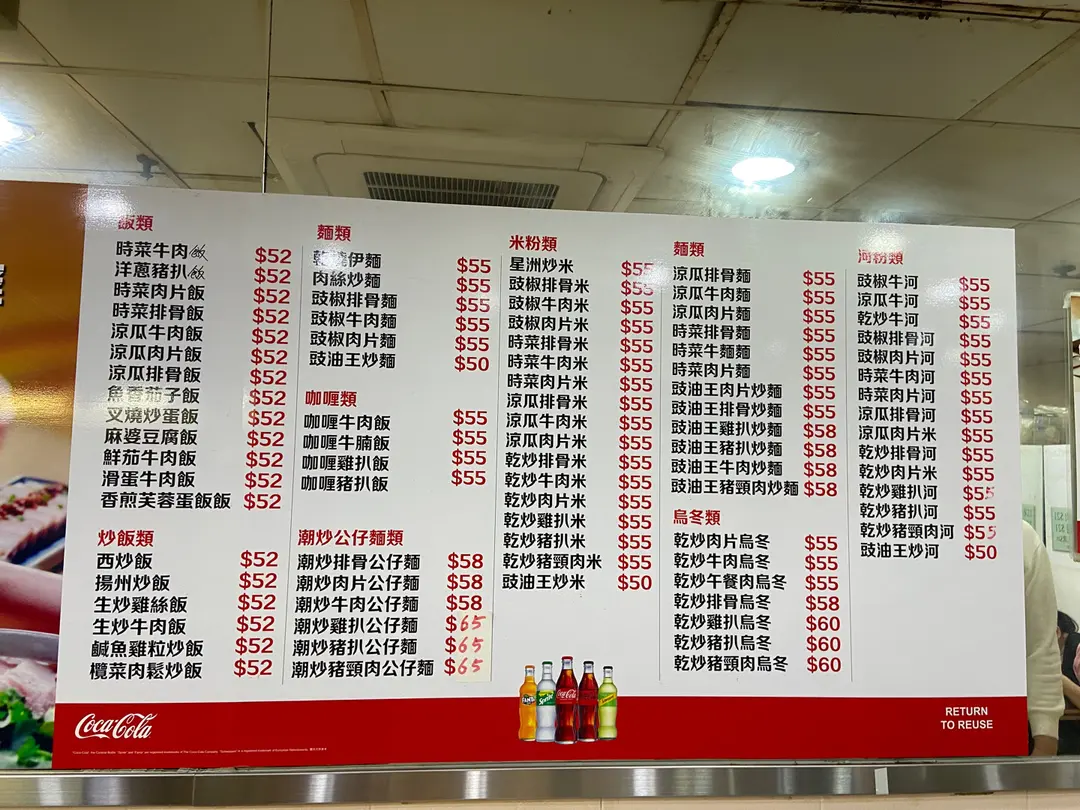 飯類
時菜牛肉飯 $52
洋蔥豬扒飯 $52
時菜肉片飯 $52
時菜排骨飯 $52
涼瓜牛肉飯 $52
涼瓜肉片飯 $52
涼瓜排骨飯 $52
魚香茄子飯 $52
叉燒炒蛋飯 $52
麻婆豆腐飯 $52
鮮茄牛肉飯 $52
滑蛋牛肉飯 $52
香煎芙蓉蛋飯飯 $52
炒飯類
西炒飯 $52
揚州炒飯 $52
生炒雞絲飯 $52
生炒牛肉飯 $52
鹹魚雞粒炒飯 $52
欖菜肉鬆炒飯 $52
麵類
乾燒伊麵 $55
肉絲炒麵 $55
豉椒排骨麵 $55
豉椒牛肉麵 $55
豉椒肉片麵 $55
豉油王炒麵 $50
咖喱類
咖喱牛肉飯 $55
咖喱牛腩飯 $55
咖喱雞扒飯 $55
咖喱豬扒飯 $55
潮炒公仔麵類
潮炒排骨公仔麵 $58
潮炒肉片公仔麵 $58
潮炒牛肉公仔麵 $58
潮炒雞扒公仔麵 $65
潮炒豬扒公仔麵 $65
潮炒豬頸肉公仔麵 $65
米粉類
星洲炒米 $55
豉椒排骨米 $55
豉椒牛肉米 $55
豉椒肉片米 $55
時菜排骨米 $55
時菜牛肉米 $55
時菜肉片米 $55
涼瓜排骨米 $55
涼瓜牛肉米 $55
涼瓜肉片米 $55
乾炒排骨米 $55
乾炒牛肉米 $55
乾炒肉片米 $55
乾炒雞扒米 $55
乾炒豬扒米 $55
乾炒豬頸肉米 $55
豉油王炒米 $50
麵類
涼瓜排骨麵 $55
涼瓜牛肉麵 $55
涼瓜肉片麵 $55
時菜排骨麵 $55
時菜牛麵麵 $55
時菜肉片麵 $55
豉油王肉片炒麵 $55
豉油王排骨炒麵 $55
豉油王雞扒炒麵 $58
豉油王豬扒炒麵 $58
豉油王牛肉炒麵 $58
豉油王豬頸肉炒麵 $58
烏冬類
乾炒肉片烏冬 $55
乾炒牛肉烏冬 $55
乾炒午餐肉烏冬 $55
乾炒排骨烏冬 $58
乾炒雞扒烏冬 $60
乾炒豬扒烏冬 $60
乾炒豬頸肉烏冬 $60
河粉類
豉椒牛河 $55
涼瓜牛河 $55
乾炒牛河 $55
豉椒排骨河 $55
豉椒肉片河 $55
時菜牛肉河 $55
時菜肉片河 $55
涼瓜排骨河 $55
涼瓜肉片米 $55
乾炒排骨河 $55
乾炒肉片米 $55
乾炒雞扒河 $55
乾炒豬扒河 $55
乾炒豬頸肉河 $55
豉油王炒河 $50
Coca-Cola
RETURN
TO REUSE